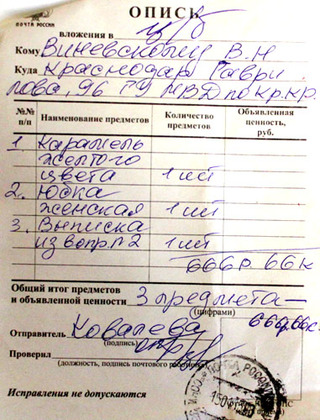 ПОЧТА РОССИИ
ОПИСЬ
вложения в ц/б
Кому Виневскому В.Н
Куда Краснодар Гаври
лова, 96 ГУ МВД по Кр.кр.
№№ п/п Наименование предметов Количество предметов Объявленная ценность, руб.
1 Карамель
желтого
цвета 1 шт
2. Юбка
женская 1 шт
3. Выписка
из вопр. п2 1 шт
666р. 66к
Общий итог предметов
и объявленной ценности 3 предмета —
(цифрами)
666р.66к.
Отправитель Ковалева
(подпись)
Проверил
(должность, подпись почтового работника)
Исправления не допускаются